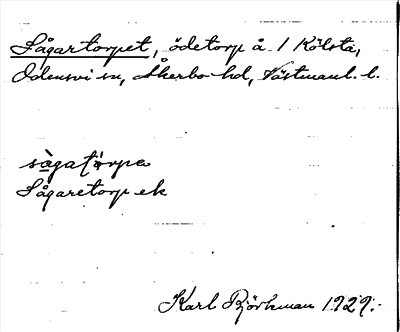 Sågartorpet, ödetorp å 1 Kölsta,
Odensvi sn, Åkerbo hd, Västmanl. l.
sågatorpa
Sågaretorp ek
Karl Björkman 1929.